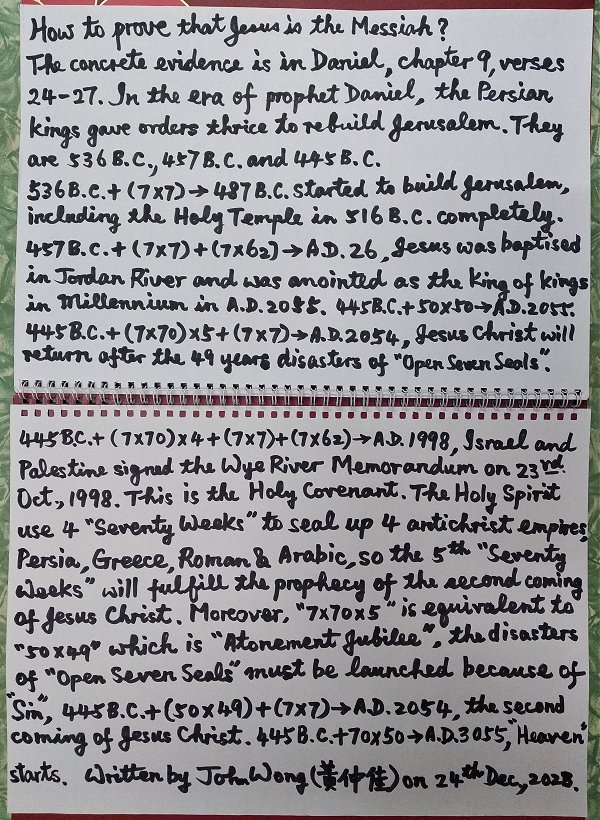 How to prove that Jesus is the Messiah?
The concrete evidence is in Daniel, chapter 9, verses
24-27. In the era of prophet Daniel, the Persian
kings gave orders thrice to rebuild Jerusalem. They
are 536 B.C., 457 B.C. and 445 B.C.
536 B.C. + (7x7) → 487 B.C. started to build Jerusalem,
including the Holy Temple in 516 B.C. completely.
457 B.C. + (7x7) + (7x62) → A.D. 26, Jesus was baptised
in Jordan River and was anointed as the King of kings
in Millennium in A.D. 2055. 445 B.C. + 50x50 → A.D. 2055.
445 B.C. + (7x70) x 5 + (7x7) → A.D. 2054, Jesus Christ will
return after the 49 years disasters of "Open Seven Seals".
445 B.C. + (7x70) x 4 + (7x7) + (7x62) → A.D. 1998, Israel and
Palestine signed the Wye River Memorandum on 23rd
Oct., 1998. This is the Holy Covenant. The Holy Spirit
use 4 "Seventy Weeks" to seal up 4 antichrist empires,
Persia, Greece, Roman & Arabic, so the 5th "Seventy
Weeks" will fulfill the prophecy of the second coming
of Jesus Christ. Moreover, "7x70x5" is equivalent to
"50x49" which is "Atonement Jubilee", the disasters
of "Open Seven Seals" must be launched because of
"Sin", 445 B.C. + (50x49) + (7x7) → A.D. 2054, the second
coming of Jesus Christ. 445 B.C. + 70x50 → A.D. 3055, "Heaven"
starts. Written by John Wong (黃仲佳) on 24th Dec., 2023.